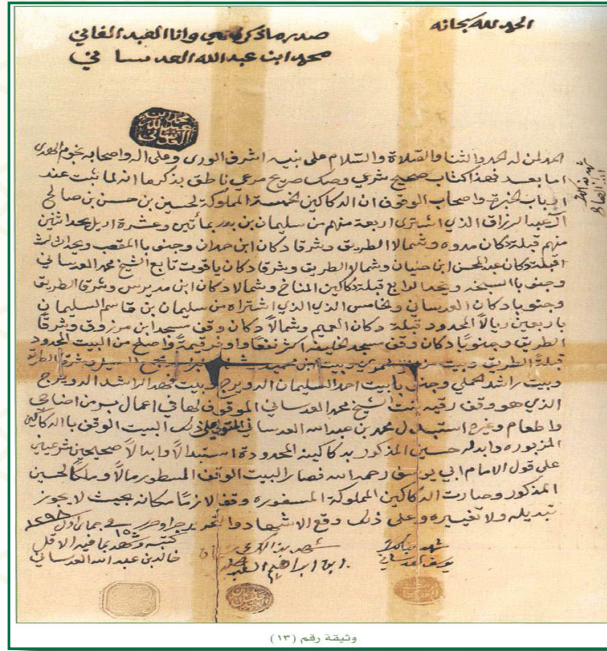 الحمد لله سبحانه
صدر ما ذكر لدي وانا العبد الفاني
محمد ابن عبدالله العدساني
الحمد لمن له الحمد والثنا والصلاة والسلام على نبيه اشرف الورى وعلى اله واصحابه نجوم الهدى
اما بعد فهذا كتاب صحيح شرعي وصك صريح مرعي ناطق بذكر ما انه لما ثبت عند
واصحاب الوقوف ان الدكاكين الخمسة المملوكة لحسين بن حسن بن صالح
آل عبدالرزاق الذي اشترى اربعة منهم من سليمان بن بدر بمأتين وعشرة اريل يحد اثنين
منهم قبلة دكان مدوه وشمالا الطريق وشرقا دكان ابن حمدان وجنوبا ويحد الثالث
قبلة دكان عبدالمحسن ابن وشمالا الطريق وشرقا دكان ياقوت تابع الشيخ محمد العدساني
وجنوبا المسجد ويحد الرابع قبلة دكاكين المناخ وشمالا دكان ابن وشرقا الطريق
وجنوبا دكان العدساني والخامس الذي اشتراه من سليمان بن قاسم السليمان
باربعين ريالا المحدود قبلة دكان وشمالا دكان وقف مسجد ابن مرزوق وشرقا
الطريق وجنوبا دكان وقف مسجد اكثر نفعا واوفر قيمة واصلح من البيت المحدود
قبلة الطريق وبيت وشرقا الطريق
وبيت راشد وجنوبا بيت احمد السليمان الدويرج وبيت فهد الاشد الدويرج
الذي هو وقف رقيه بنت الشيخ محمد العدساني الموقوف لها في اعمال بر من اضاحي
واطعام وغيره استبدل محمد بن عبدالله العدساني المتولي على ذلك البيت الوقف بالدكاكين
المزبوره وابدله حسين المذكور بدكاكينه المحدودة استبدالا وابدالا صحيحين شرعيين
على قول الامام ابي يوسف رحمه الله فصار البيت الوقف المسطور مالا وملكا لحسين
المذكور وصارت الدكاكين المملوكة المسفوره وقفا لازما مكانه بحيث لا يجوز
تبديله ولا تغييره وعلى ذلك وقع الاشهاد والتحرير جرا وحرر في ١٥ جمادى اول ١٢٩٨
شهد بذلك
يوسف العدساني
شهد بذلك
ابن ابراهيم
كتبه وشهد بما فيه الاقل
خالد بن عبدالله العدساني
وثيقة رقم (١٣)